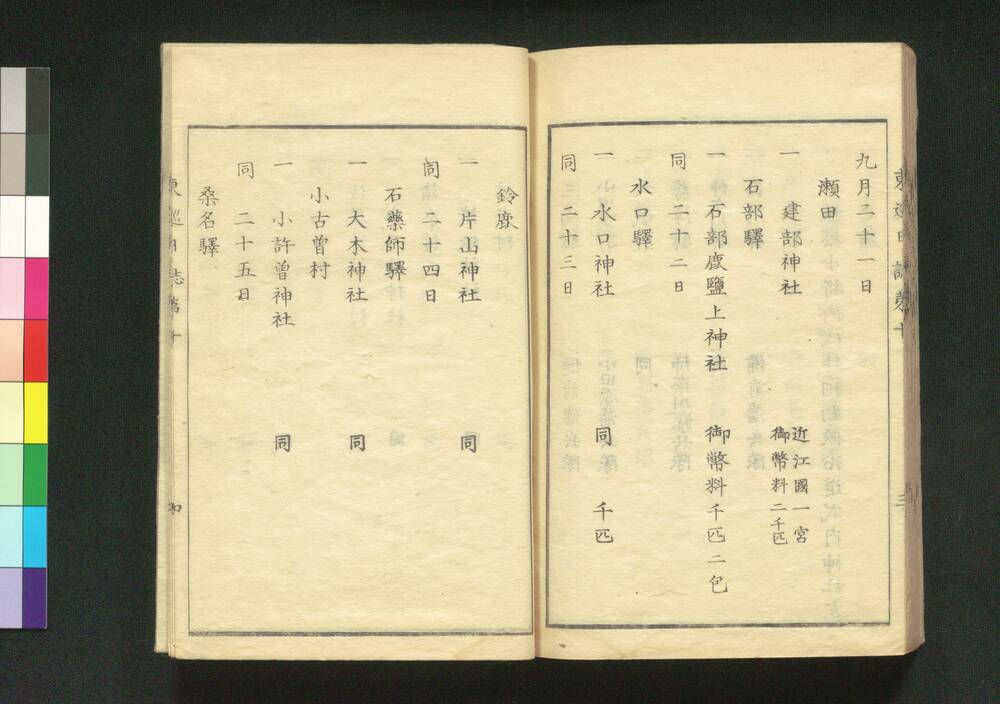 九月二十一日
瀬田
一 建部神社 近江國一宮
御幣料二千匹
石部驛
一 石部鹿鹽上神社 御幣料千匹二包
同 二十二日
水口驛
一 水口神社 同 千匹
同 二十三日
鈴鹿
一 片山神社 同
同 二十四日
石藥師驛
一 大木神社 同
小古曾村
一 小許曾神社 同
同 二十五日
桑名驛